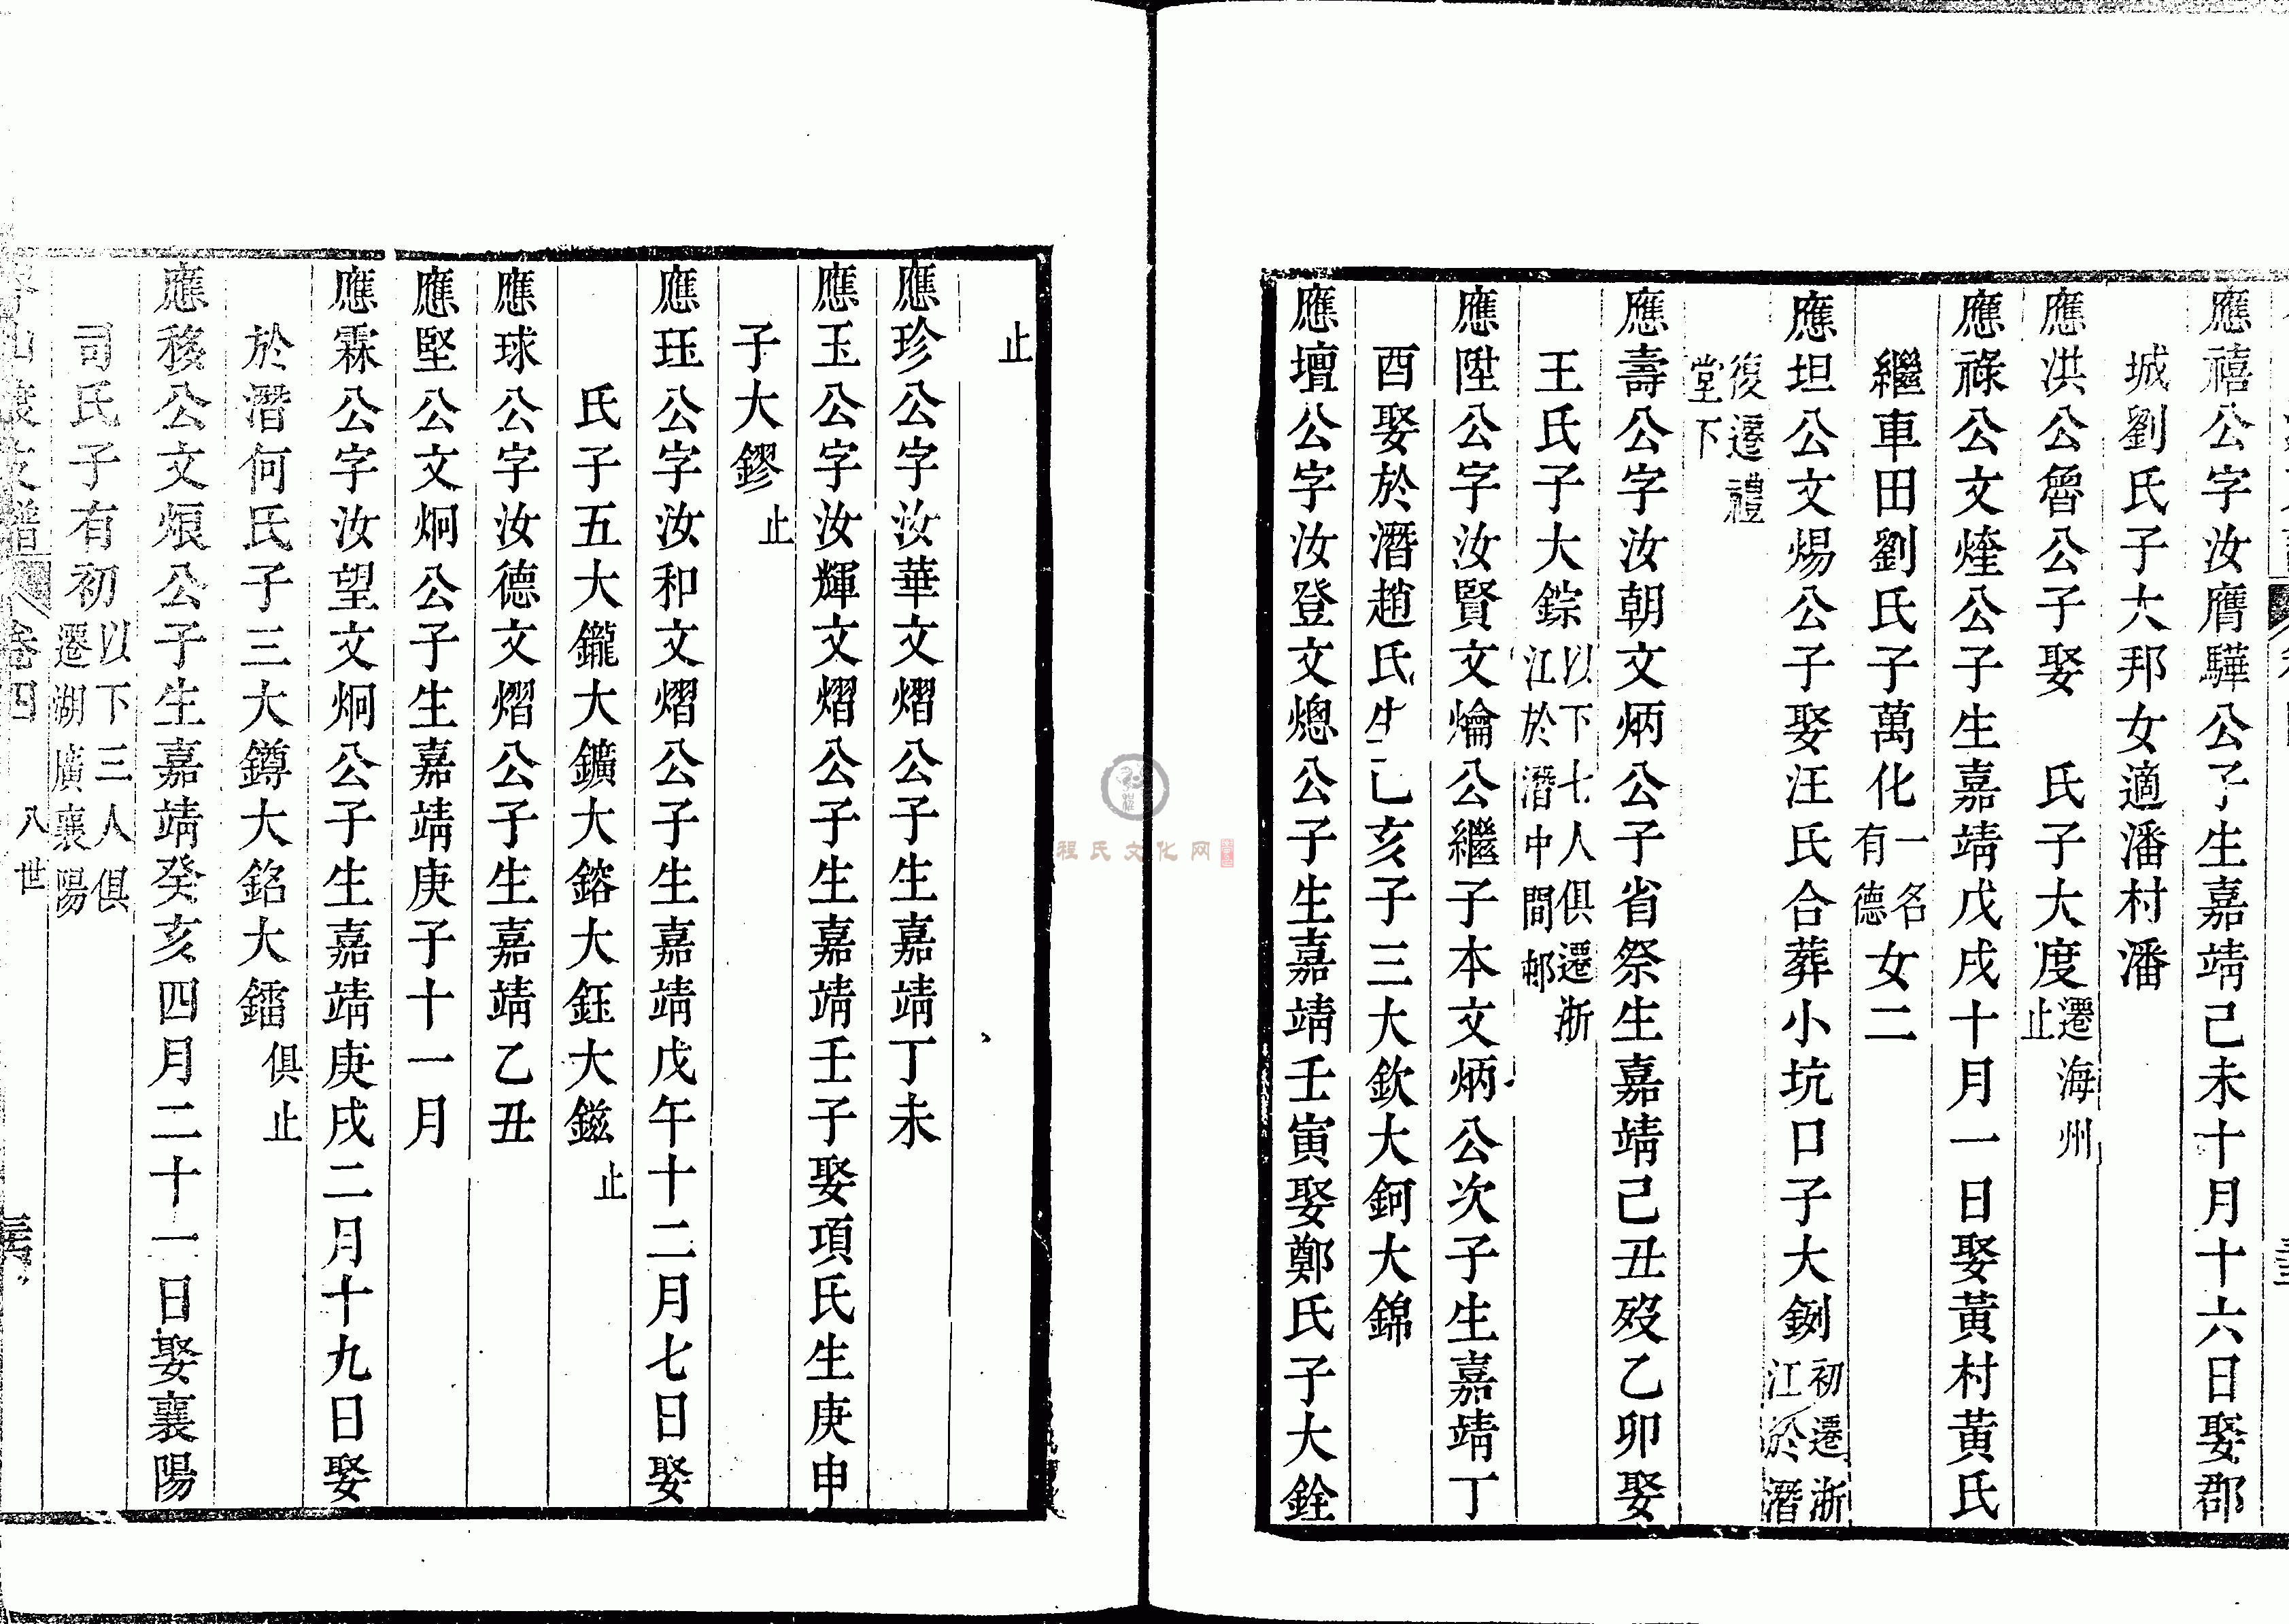 應禧公字汝膺驊公子生嘉靖己未十月十六日娶郡
城劉氏子大邦女適潘村潘
應洪公魯公子娶　氏子大度遷海州止
應祿公文煃公子生嘉靖戊戌十月一日娶黃村黃氏
繼車田劉氏子萬化一名有德女二
應坦公文煬公子娶汪氏合葬小坑口子大鍘初遷浙江於潛
復遷禮堂下
應壽公字汝朝文炳公子省祭生嘉靖己丑歿乙卯娶
王氏子大錝以下七人俱遷浙江於潛中間邨
應陞公字汝賢文爚公繼子本文炳公次子生嘉靖丁
酉娶於潛趙氏生己亥子三大欽大鈳大錦
應壇公字汝登文熜公子生嘉靖壬寅娶鄭氏子大銓
止
應珍公字汝華文熠公子生嘉靖丁未
應玉公字汝輝文熠公子生嘉靖壬子娶項氏生庚申
子大鏐止
應珏公字汝和文熠公子生嘉靖戊午十二月七日娶
氏子五大鑨大鑛大鎔大鈺大鎡止
應球公字汝德文熠公子生嘉靖乙丑
應堅公文炯公子生嘉靖庚子十一月
應霖公字汝望文炯公子生嘉靖庚戌二月十九日娶
於潛何氏子三大鐏大銘大鐳俱止
應移公文烺公子生嘉靖癸亥四月二十一日娶襄陽
司氏子有初以下三人俱遷湖廣襄陽
山渡支譜　卷四　八世
程氏文化网